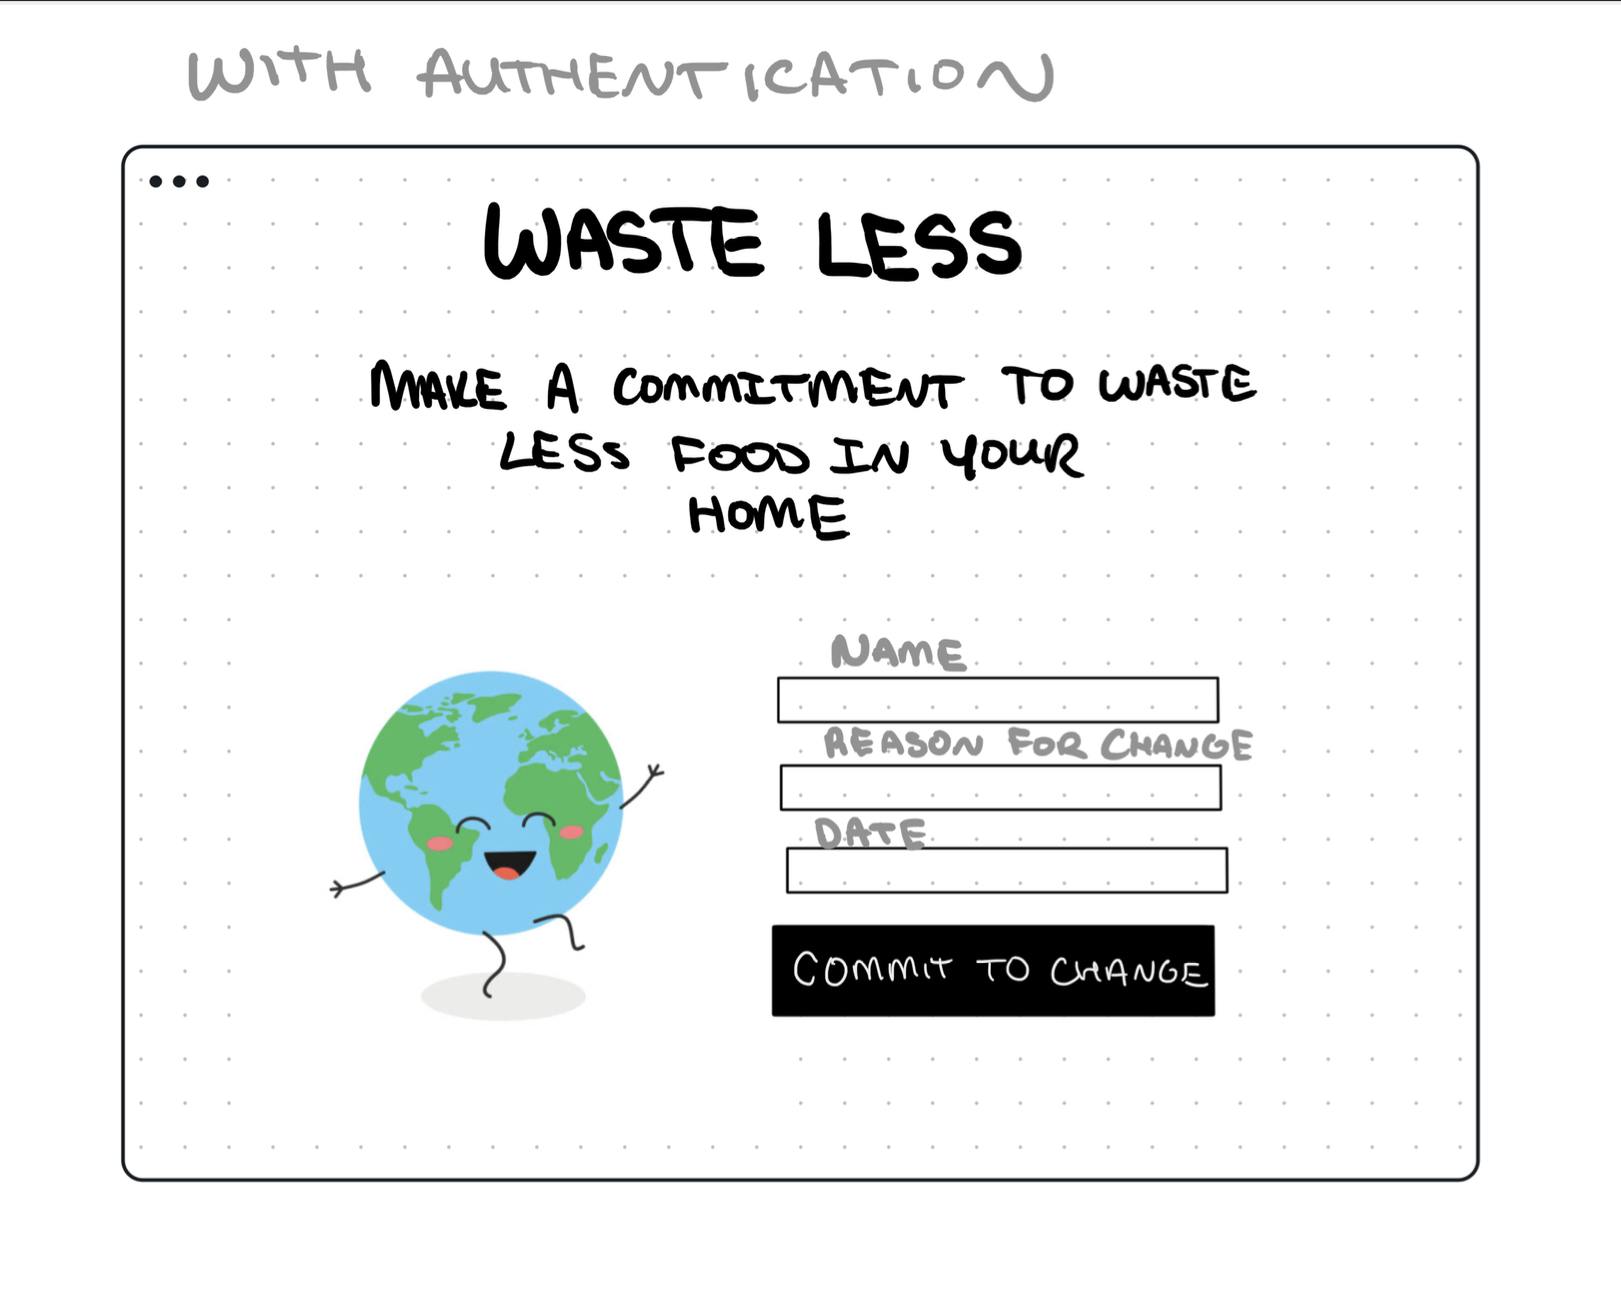 WITH AUTHENTICATION
WASTE LESS
MAKE A COMMITMENT TO WASTE
LESS FOOD IN YOUR
HOME
NAME
REASON FOR CHANGE
DATE
COMMIT TO CHANGE